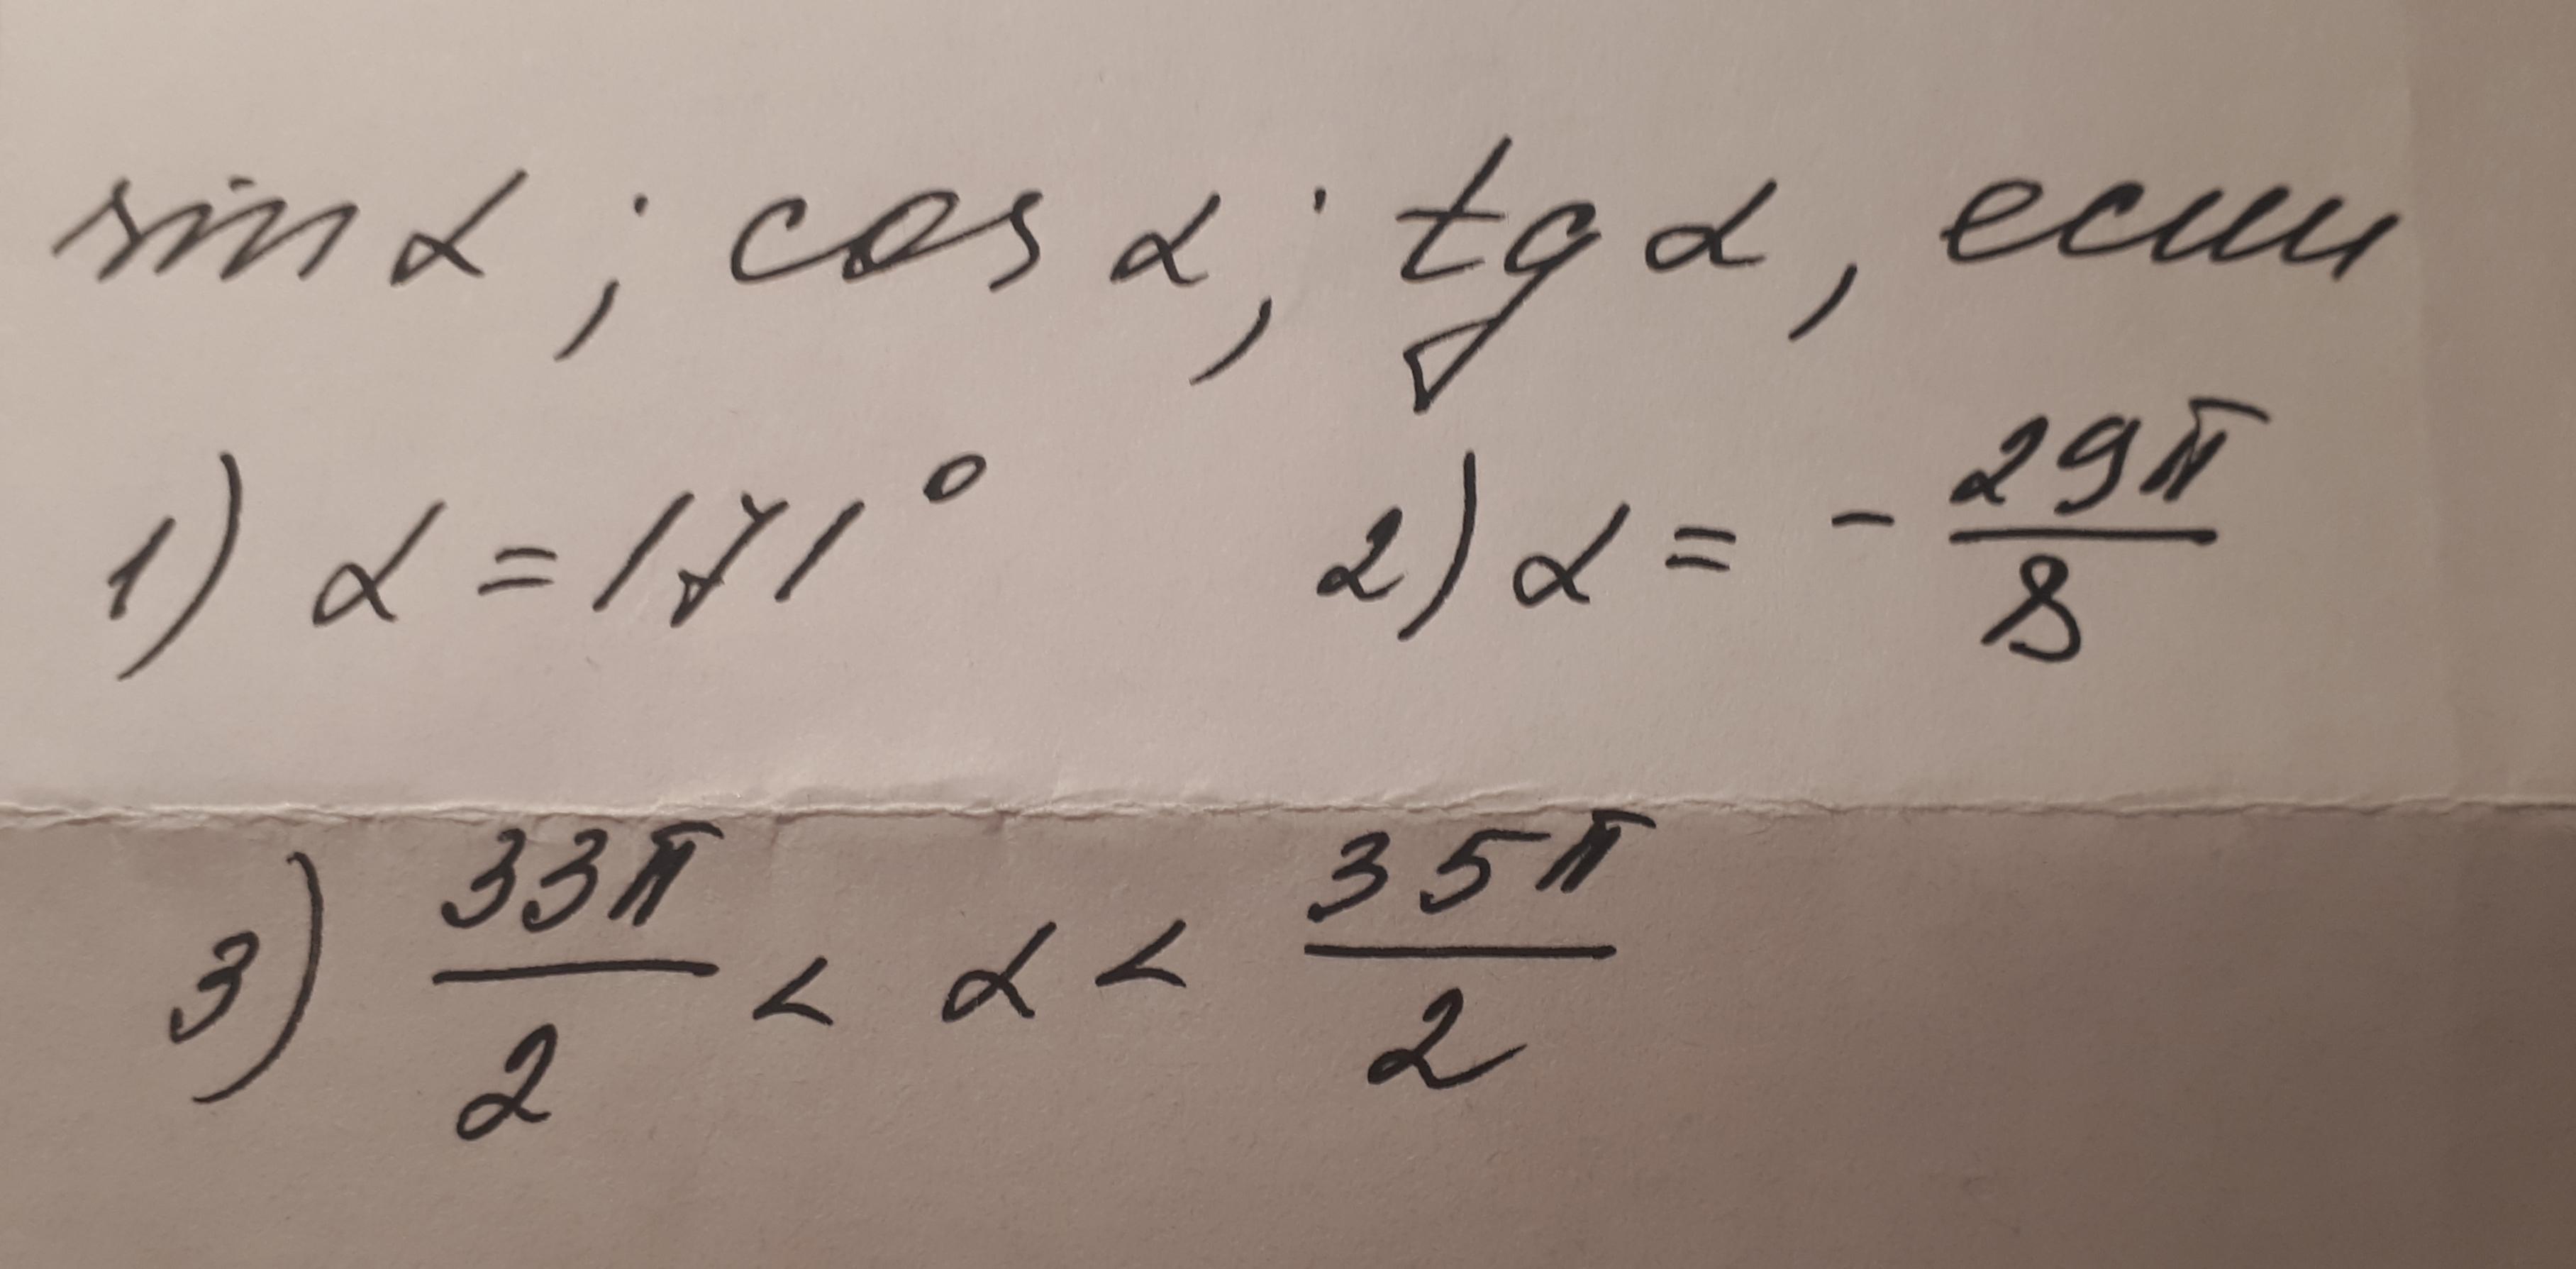 sin α ; cos α ; tg α , если
1) α = 171° 2) α = - 29π/8
3) 33π/2 < α < 35π/2